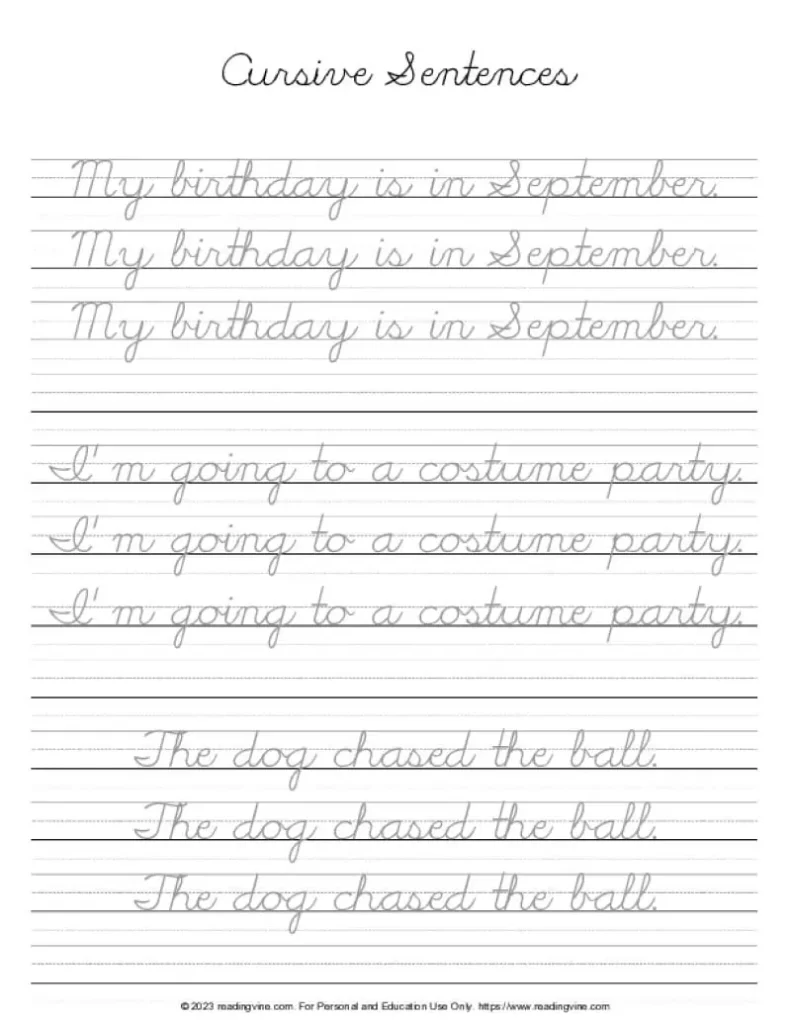 Cursive Sentences
My birthday is in September.
My birthday is in September.
My birthday is in September.
I'm going to a costume party.
I'm going to a costume party.
I'm going to a costume party.
The dog chased the ball.
The dog chased the ball.
The dog chased the ball.
©2023 readingvine.com. For Personal and Education Use Only. https://www.readingvine.com